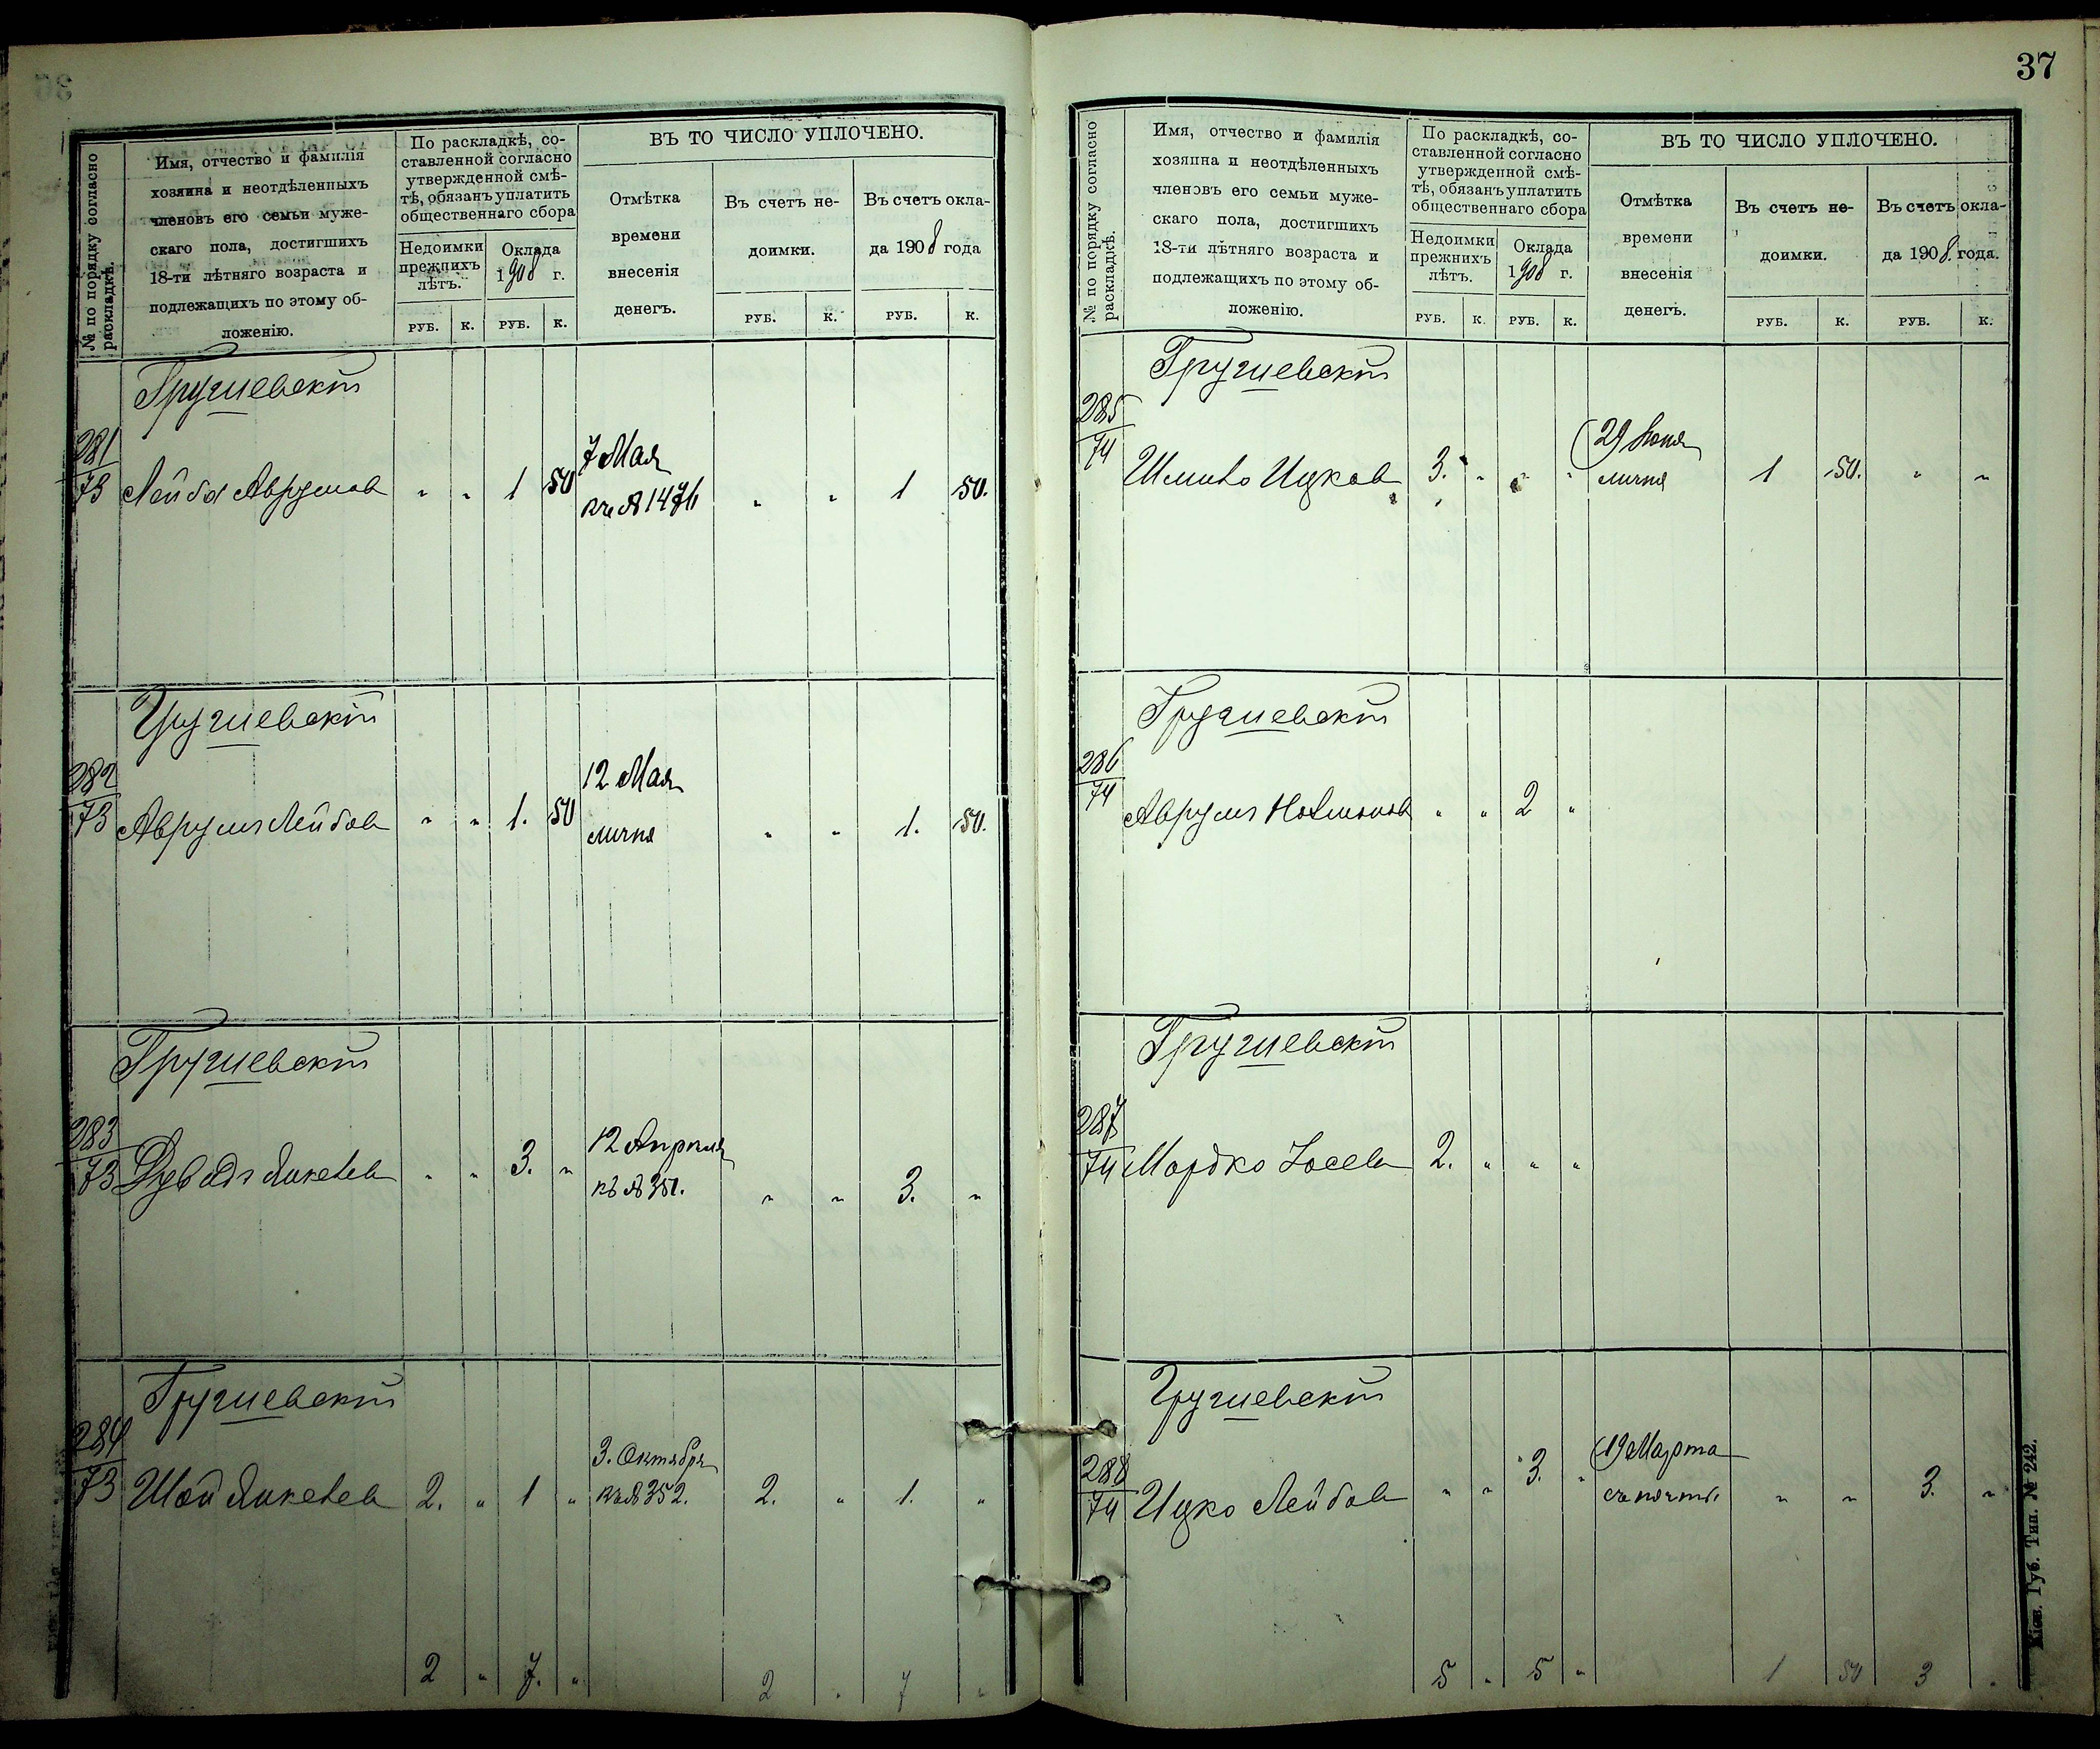 № по порядку согласно
раскладкѣ.
Имя, отчество и фамилія
хозяина и неотдѣленныхъ
членовъ его семьи муже-
скаго пола, достигшихъ
18-ти лѣтняго возраста и
подлежащихъ по этому об-
ложенію.
По раскладкѣ, со-
ставленной согласно
утвержденной смѣ-
тѣ, обязанъ уплатить
общественнаго сбора
Недоимки
прежнихъ
лѣтъ.
Оклада
1908 г.
РУБ. К. РУБ. К.
ВЪ ТО ЧИСЛО УПЛОЧЕНО.
Отмѣтка
времени
внесенія
денегъ.
Въ счетъ не-
доимки.
Въ счетъ окла-
да 1908 года
РУБ. К. РУБ. К.
Грушевскій
281/73 Лейба Аврумов " " 1 50 7 Мая " " 1 50.
кв № 1471
Грушевскій
282/73 Аврумъ Лейбов " " 1. 50 12 Мая " " 1. 50.
лично
Грушевскій
283/73 Дувидъ Янкелев " " 3. " 12 Апрѣля " " 3. "
кв № 351.
Грушевскій
284/73 Шая Янкелев 2. " 1 " 3. Октября 2. " 1. "
кв № 352.
2 " 7. " 2 " 7 "
37
№ по порядку согласно
раскладкѣ.
Имя, отчество и фамилія
хозяина и неотдѣленныхъ
членовъ его семьи муже-
скаго пола, достигшихъ
18-ти лѣтняго возраста и
подлежащихъ по этому об-
ложенію.
По раскладкѣ, со-
ставленной согласно
утвержденной смѣ-
тѣ, обязанъ уплатить
общественнаго сбора
Недоимки
прежнихъ
лѣтъ.
Оклада
1908 г.
РУБ. К. РУБ. К.
ВЪ ТО ЧИСЛО УПЛОЧЕНО.
Отмѣтка
времени
внесенія
денегъ.
Въ счетъ не-
доимки.
Въ счетъ окла-
да 1908 года.
РУБ. К. РУБ. К.
Грушевскій
285/74 Ицков 3. " " " 29 1 50. " "
лично
Грушевскій
286/74 Аврумъ " " 2 "
Грушевскій
287/74 Мордко Іосев 2. " " "
Грушевскій
288/74 Ицко Лейбов " " 3. " 19 Марта " " 3. "
5 " 5 " 1 50 3 "
Кіев. Губ. Тип. № 242.